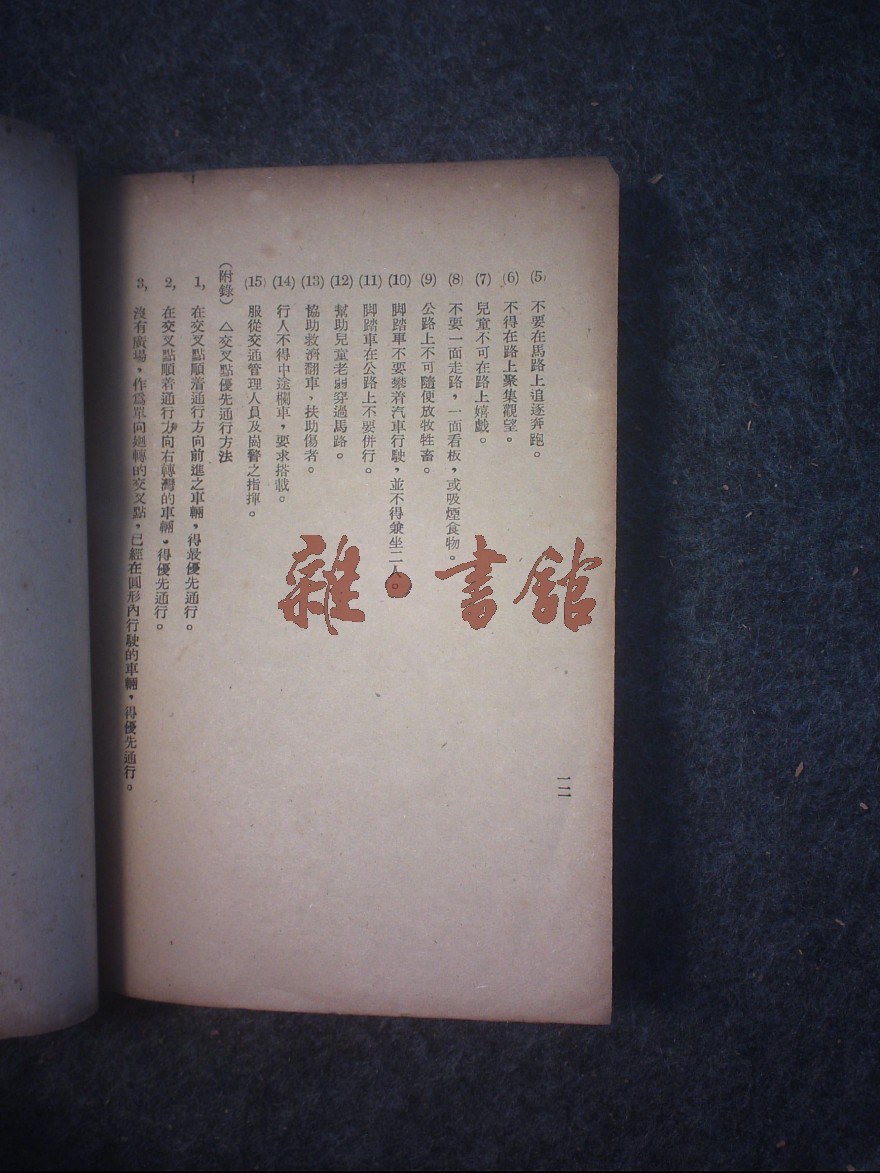 (5) 不要在馬路上追逐奔跑。
(6) 不得在路上聚集觀望。
(7) 兒童不可在路上嬉戲。
(8) 不要一面走路，一面看板，或吸煙食物。
(9) 公路上不可隨便放牧牲畜。
(10) 脚踏車不要攀着汽車行駛，並不得兼坐二人。
(11) 脚踏車在公路上不要併行。
(12) 幫助兒童老弱穿過馬路。
(13) 協助救濟翻車，扶助傷者。
(14) 行人不得中途欄車，要求搭載。
(15) 服從交通管理人員及崗警之指揮。
(附錄) △交叉點優先通行方法
1, 在交叉點順着通行方向前進之車輛，得最優先通行。
2, 在交叉點順着通行方向右轉灣的車輛，得優先通行。
3, 沒有廣場，作爲單向廻轉的交叉點，已經在圓形內行駛的車輛，得優先通行。
一二
雜·書館